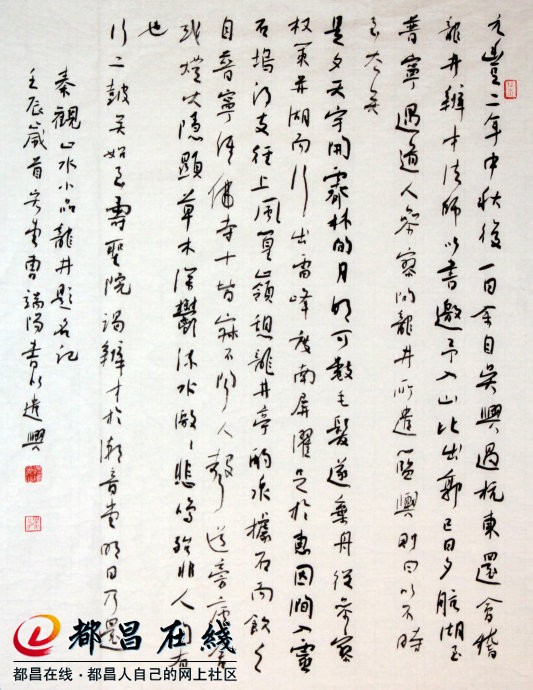 元豐二年中秋後一日余自吳興過杭東還會稽
龍井辯才法師以書邀予入山比出郭已日夕航湖至
普寧遇道人參寥問龍井所遣籃輿則曰以不時
至去矣
是夕天宇開霽林間月明可數毛髮遂棄舟從參寥
杖策並湖而行出雷峰度南屏濯足於惠因澗入靈
石塢得支徑上風篁嶺憩龍井亭酌泉據石而飲之
自普寧經佛寺十皆寂不聞人聲道旁廬舍
或燈火隱顯草木深鬱流水激激悲鳴殆非人間有
也
行二鼓矣始至壽聖院謁辯才於潮音堂明日乃還
秦觀山水小品龍井題名記
壬辰歲首 曹端陽書以遣興
都昌在线
都昌在线·都昌人自己的网上社区